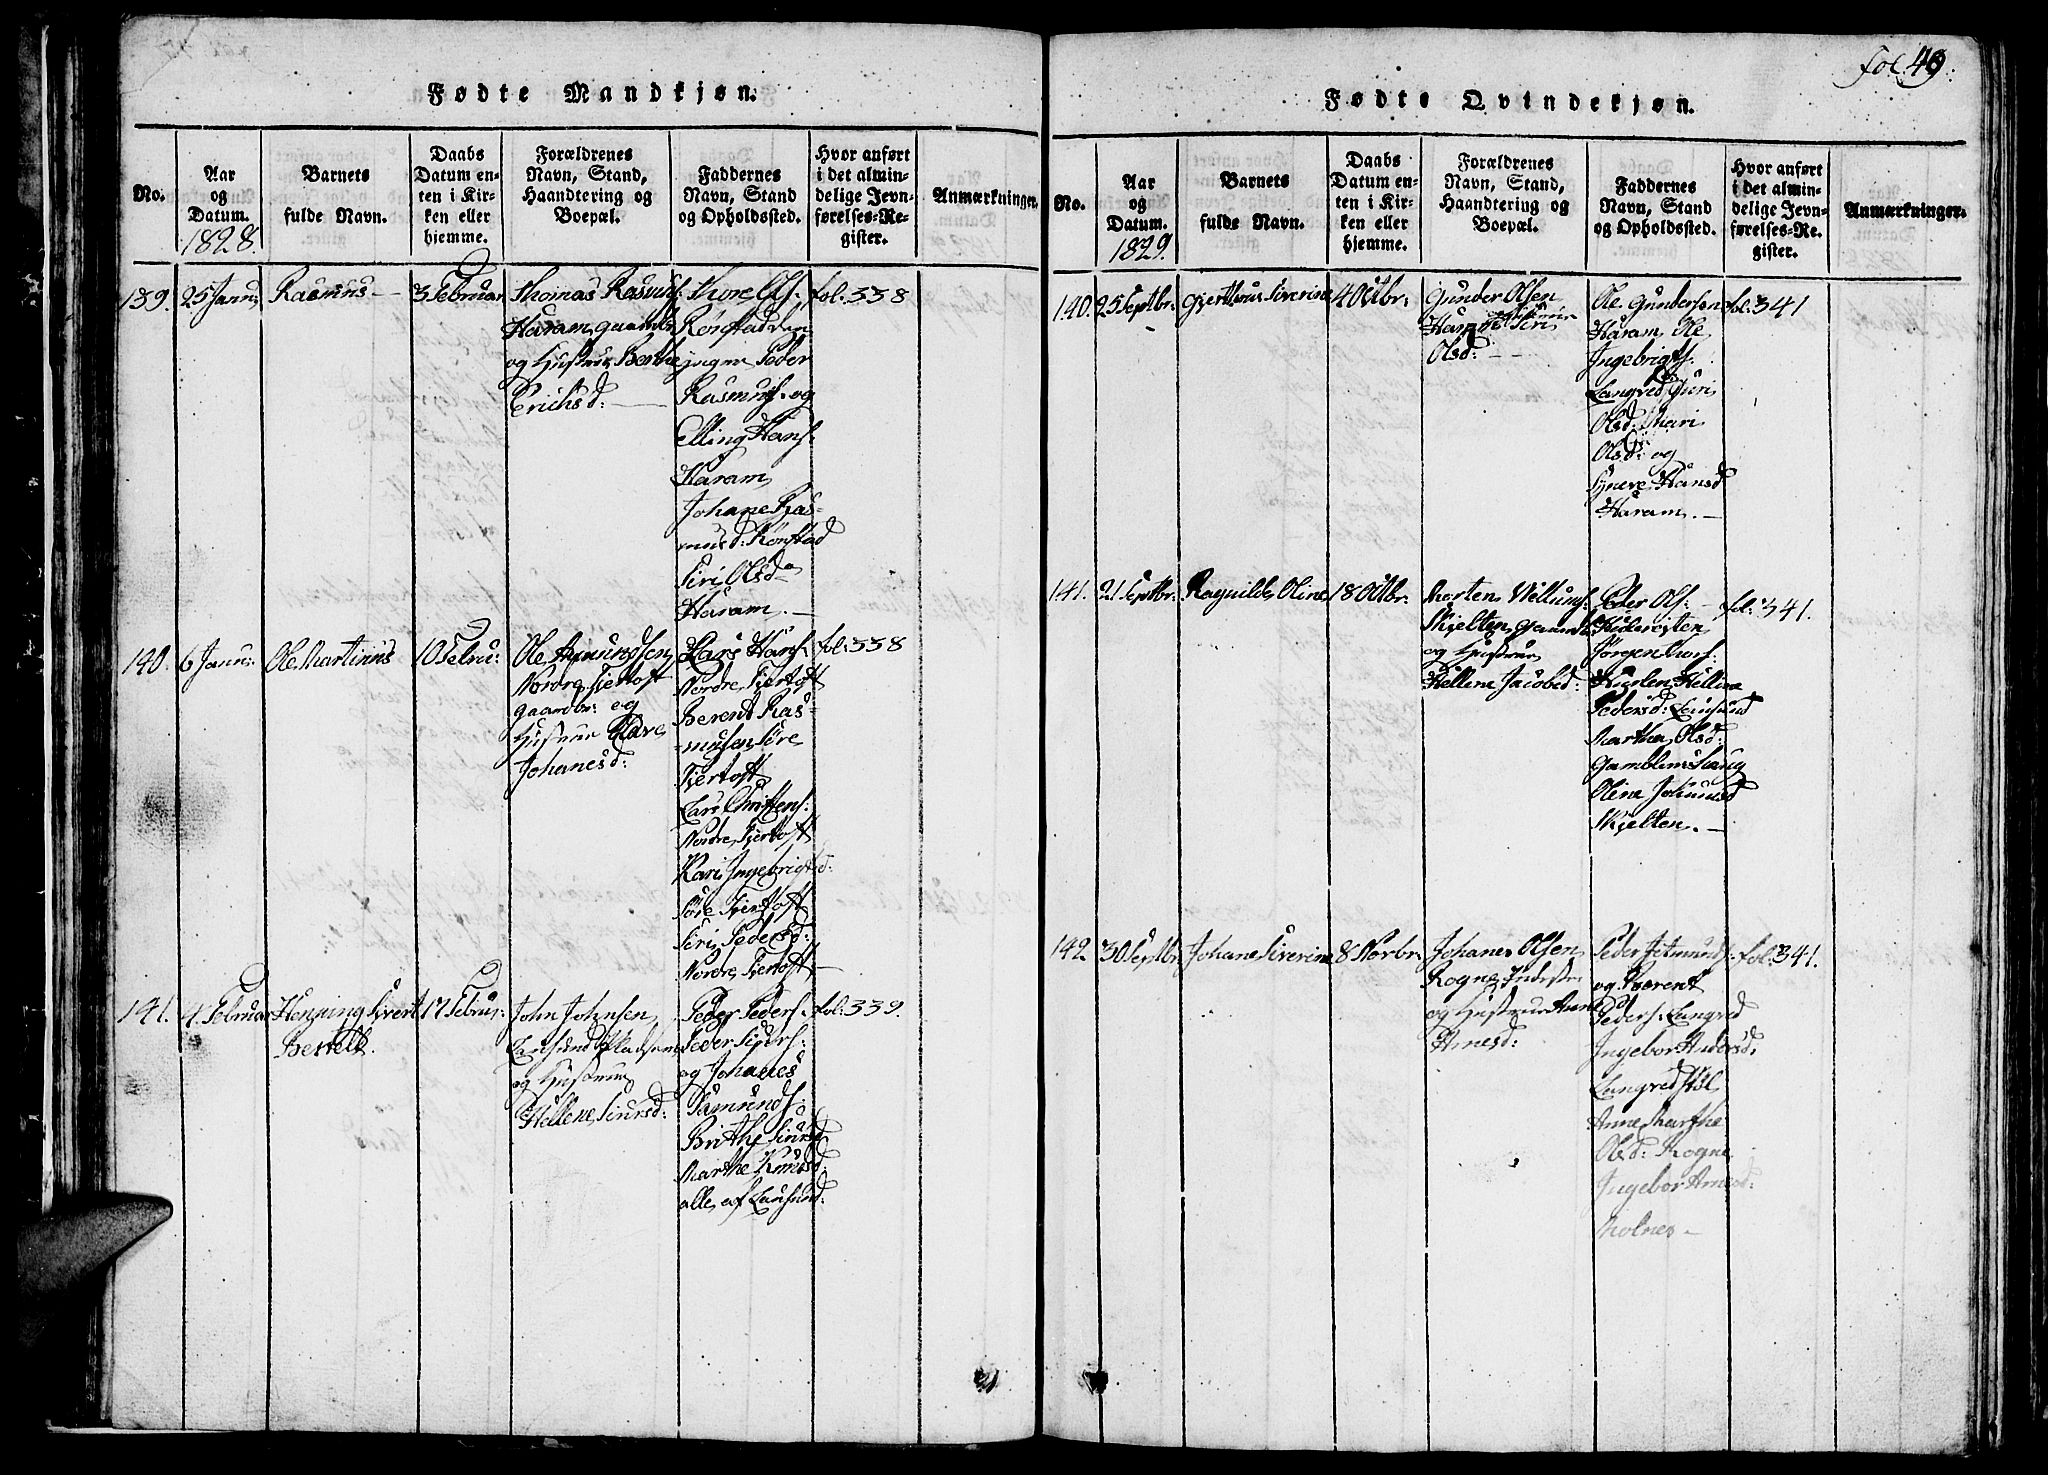 Fødte Mandkjøn.
No.
Aar
og
Datum.
1828.
Barnets
fulde Navn.
Daabs
Datum en-
ten i Kir-
ken eller
hjemme.
Forældrenes
Navn, Stand,
Haandtering og
Boepæl.
Faddernes
Navn, Stand
og Opholdssted.
Hvor anført
i det almin-
delige Jevn-
førelses-Re-
gister.
Anmærkninger.
139.
25 Janu:
Rasmus
3 Februar
Thomas Rasmus:
Haram gaardb:
og Hustrue Berthe
Erichsd:
Thore Ols:
Rønstad den
yngre Peder
Rasmus: og
Elling Hans:
Haram
Johane Ras-
musd: Rønstad
Siri Olsd
Haram.
fol: 338
140.
6 Janu:
Ole Martinus
10 Febru:
Ole Amundsen
Nordre Fiertoft
gaardbr: og
Hustrue
Johanesd:
Lars Hans:
Nordre Fiertoft
Berent Ras-
musen Søre
Fiertoft
Lars Christens:
Nordre Fiertoft
Kari Ingebrigtsd:
Søre Fiertoft
Siri Pedersd:
Nordre Fiertoft
fol: 338
141.
4 Februar
Henning Sivert
Bertell.
17 Februar:
John Johnsen
Lausund
og Hustrue
Hellene Sivursd:
Peder Peders:
Peder
og Johanes
Samunds:
Brithe Sivursd
Marthe Knudsd:
alle af Lausund:
fol: 339.
fol: 49:
Fødte Qvindekjøn.
No.
Aar
og
Datum.
1829.
Barnets
fulde Navn.
Daabs
Datum en-
ten i Kir-
ken eller
hjemme.
Forældrenes
Navn, Stand,
Haandtering og
Boepæl.
Faddernes
Navn, Stand
og Opholdssted.
Hvor anført
i det almin-
delige Jevn-
førelses-Re-
gister.
Anmærkninger.
140.
25 Septbr:
Gierthrue Siverine
4 Octbr:
Gunder Olsen
Haram Siri
Olsd:
Ole Gundersen
Haram Ole
Ingebrigts:
Langved Guri
Olsd: Mari
Olsd: og
Syneve Hansd
Haram.
fol: 341
141.
21 Septbr:
Ragnilde Oline
18 Octbr:
Morten Villums:
Skjelten gaardb:
og Hustrue
Hellene Jacobsd:
Peder Ols:
Jørgen
Pedersd: Lausund
Marthe Olsd:
Oline Johansd
Skjelten.
fol: 341.
142.
30 Septbr:
Johane Siverine
8 Novbr:
Johanes Olsen
Rogne Inderst
og Hustrue Anne
Arnesd:
Peder Jetmunds:
og Berent
Peders: Langved
Ingebor Andersd:
Langved
Anne Marthe
Olsd: Rogne
Ingebor Arnesd:
Molnes
fol: 341.